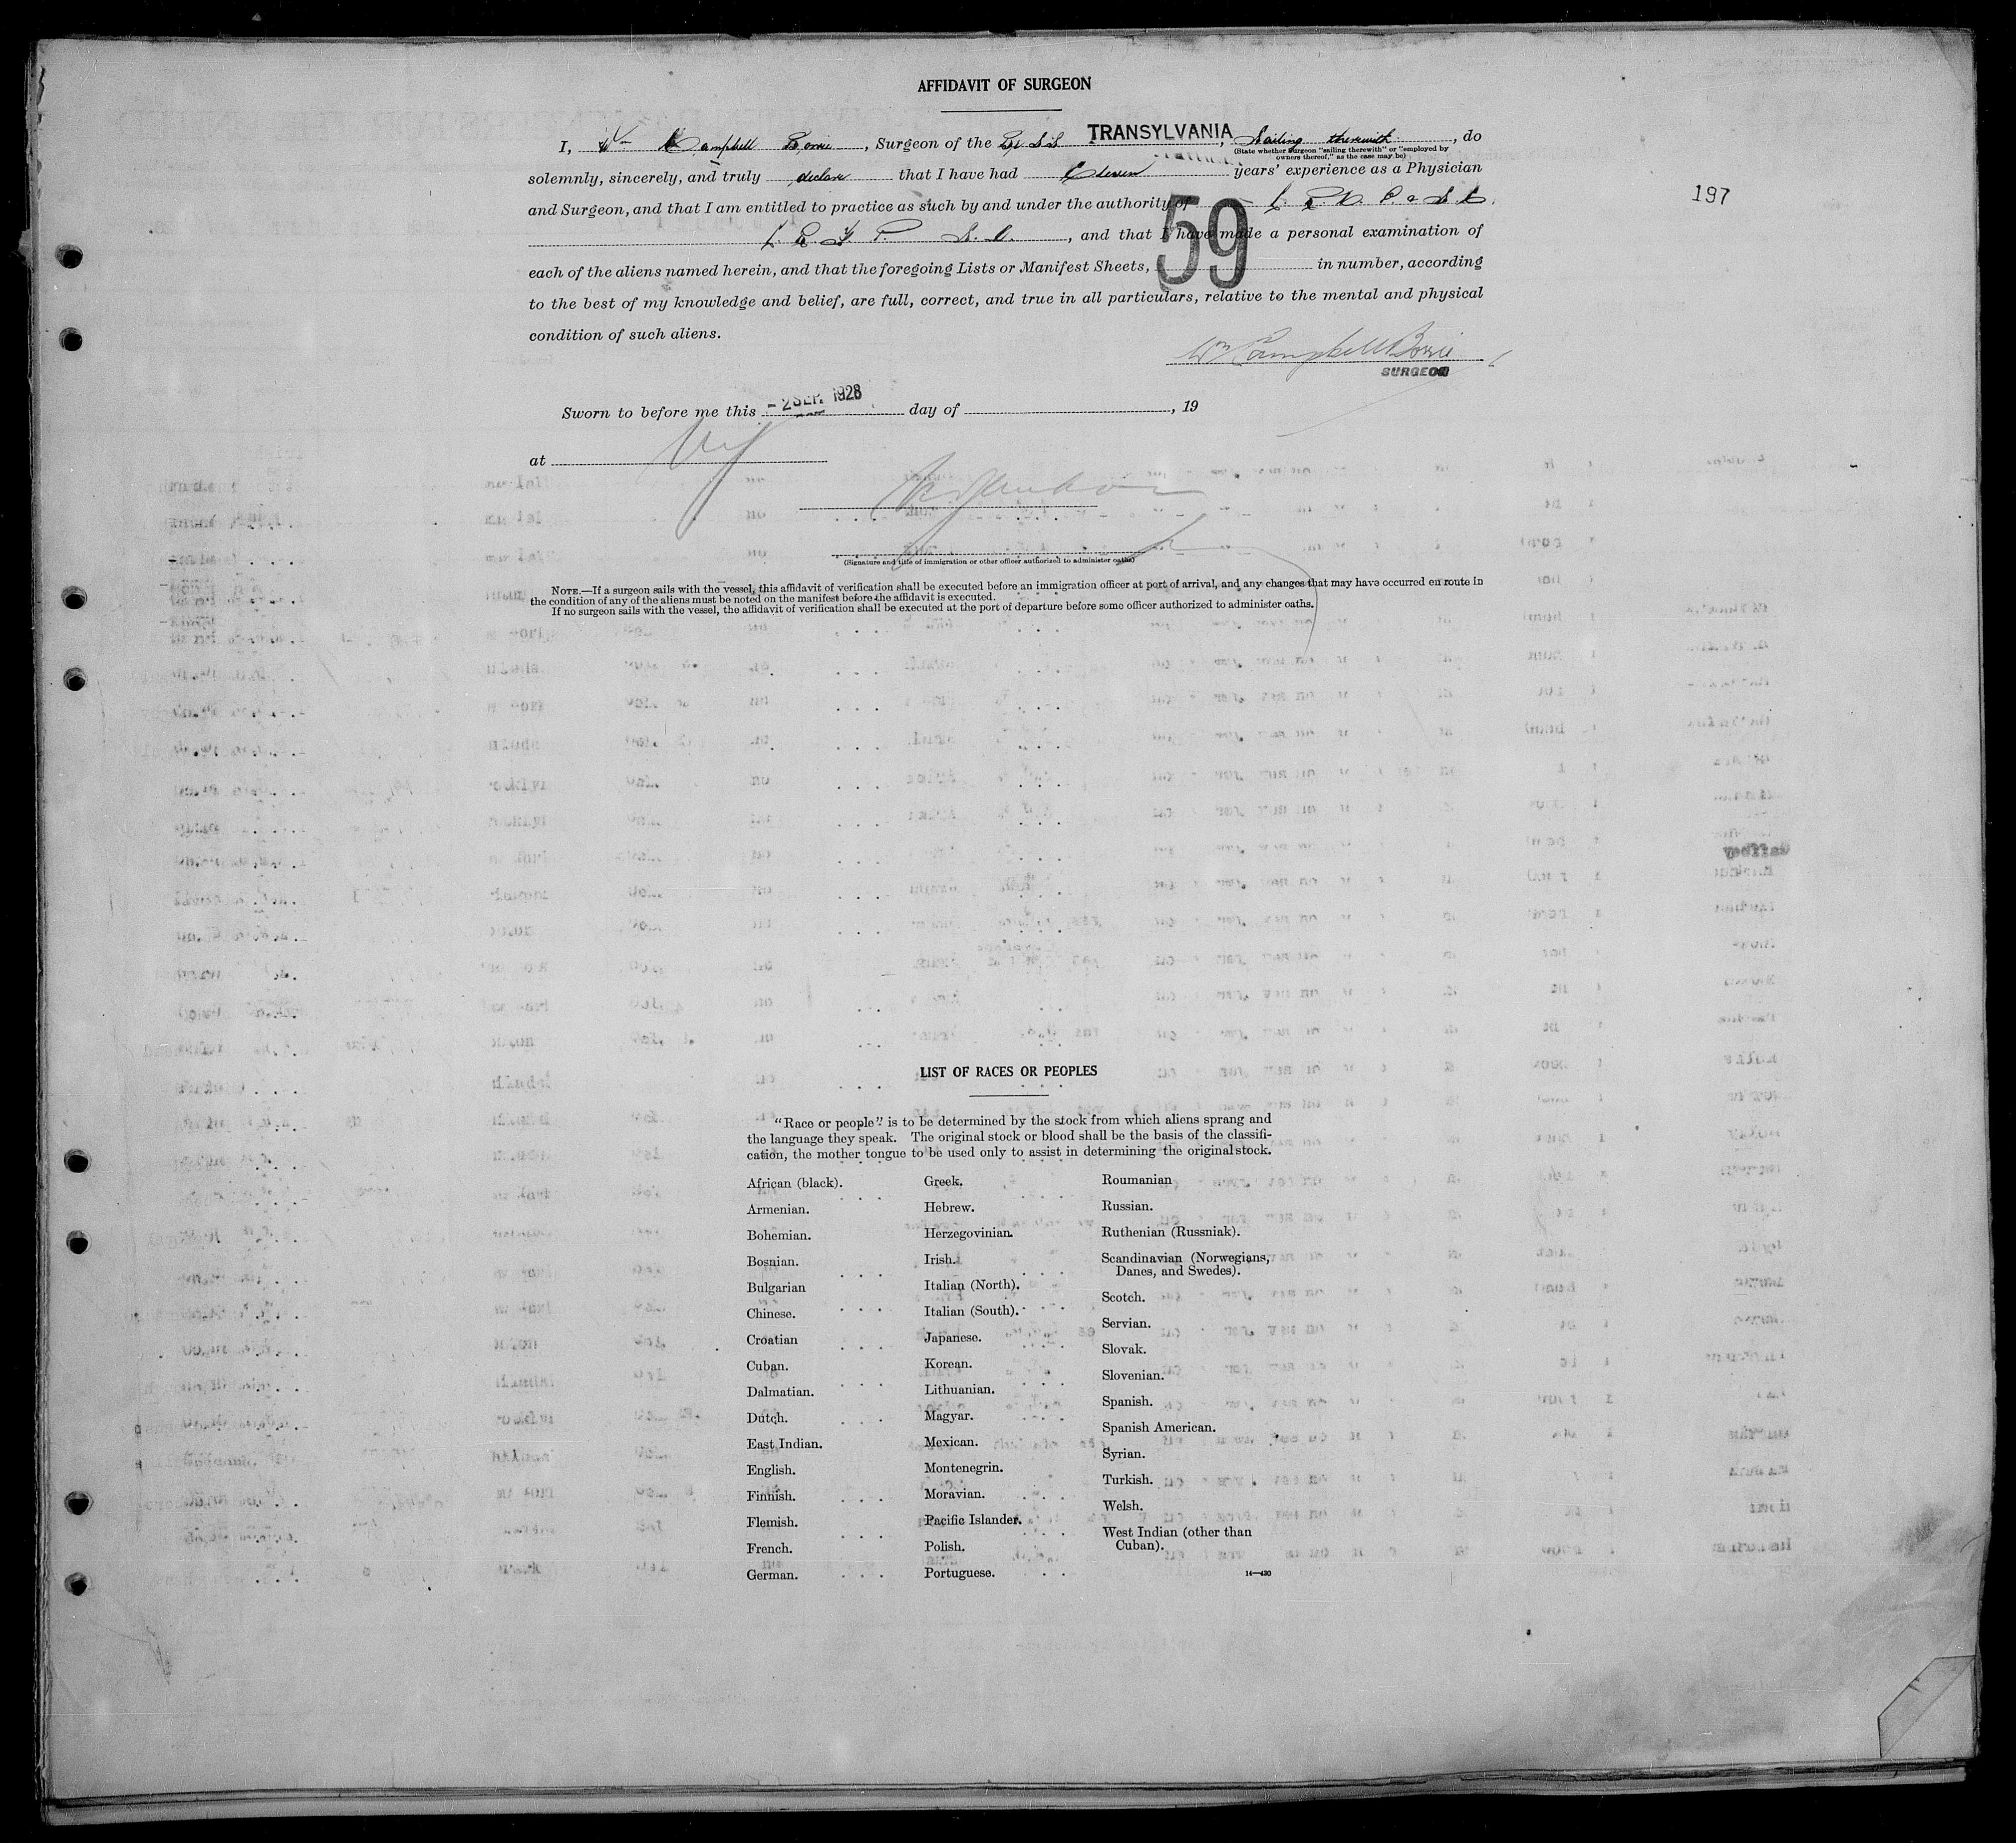 AFFIDAVIT OF SURGEON
I, Wm Campbell Borrie, Surgeon of the Br. S.S. TRANSYLVANIA, Sailing therewith, do
(State whether Surgeon "sailing therewith" or "employed by
owners thereof," as the case may be)
solemnly, sincerely, and truly declare that I have had Eleven years' experience as a Physician
197
and Surgeon, and that I am entitled to practice as such by and under the authority of L. R. C. P. & S. E.
L. R. F. P. S. G., and that I have made a personal examination of
each of the aliens named herein, and that the foregoing Lists or Manifest Sheets, 59 in number, according
to the best of my knowledge and belief, are full, correct, and true in all particulars, relative to the mental and physical
condition of such aliens.
Wm Campbell Borrie
SURGEON
Sworn to before me this - 2 SEP. 1928 day of , 19
at
(Signature and title of immigration or other officer authorized to administer oaths)
NOTE.—If a surgeon sails with the vessel, this affidavit of verification shall be executed before an immigration officer at port of arrival, and any changes that may have occurred en route in
the condition of any of the aliens must be noted on the manifest before the affidavit is executed.
If no surgeon sails with the vessel, the affidavit of verification shall be executed at the port of departure before some officer authorized to administer oaths.
LIST OF RACES OR PEOPLES
"Race or people" is to be determined by the stock from which aliens sprang and
the language they speak. The original stock or blood shall be the basis of the classifi-
cation, the mother tongue to be used only to assist in determining the original stock.
African (black).
Armenian.
Bohemian.
Bosnian.
Bulgarian
Chinese.
Croatian
Cuban.
Dalmatian.
Dutch.
East Indian.
English.
Finnish.
Flemish.
French.
German.
Greek.
Hebrew.
Herzegovinian.
Irish.
Italian (North).
Italian (South).
Japanese.
Korean.
Lithuanian.
Magyar.
Mexican.
Montenegrin.
Moravian.
Pacific Islander.
Polish.
Portuguese.
Roumanian
Russian.
Ruthenian (Russniak).
Scandinavian (Norwegians,
Danes, and Swedes).
Scotch.
Servian.
Slovak.
Slovenian.
Spanish.
Spanish American.
Syrian.
Turkish.
Welsh.
West Indian (other than
Cuban).
14—430